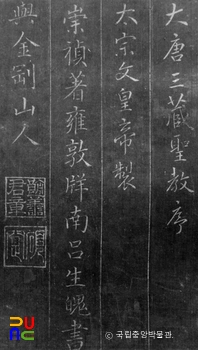 大唐三蔵聖教序
太宗文皇帝製
崇禎著雍敦牂南呂生魄書
與金剛山人
© 국립중앙박물관